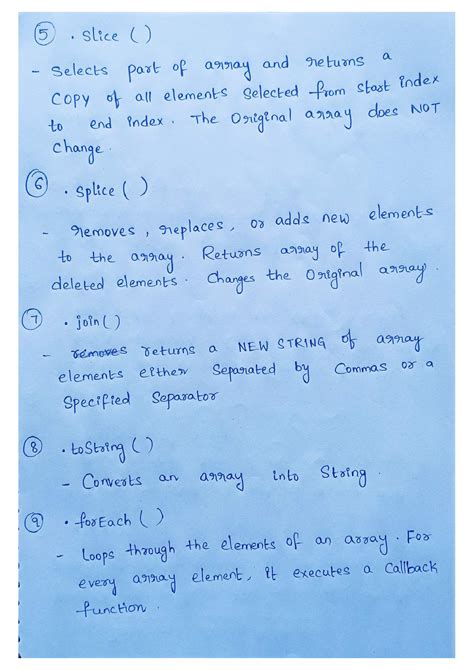 5 . Slice ( )
- Selects part of array and returns a
COPY of all elements Selected from start index
to end index. The Original array does NOT
change.
6 . Splice ( )
- removes, replaces, or adds new elements
to the array. Returns array of the
deleted elements. Changes the Original array.
7 . join ( )
- removes returns a NEW STRING of array
elements either Separated by Commas or a
Specified Separator
8 . toString ( )
- Converts an array into String.
9 . forEach ( )
- Loops through the elements of an array. For
every array element, it executes a Callback
function.